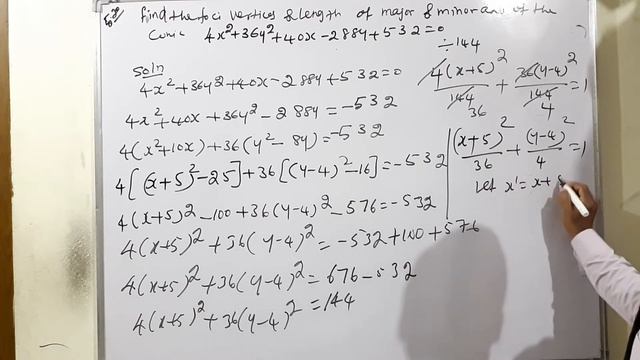 5.20 find the foci vertices & length of major & minor axes of the
conic 4x²+36y²+40x-288y+532=0
soln
4x²+36y²+40x-288y+532=0
4x²+40x+36y²-288y=-532
4(x²+10x)+36(y²-8y)=-532
4[(x+5)²-25]+36[(y-4)²-16]=-532
4(x+5)²-100+36(y-4)²-576=-532
4(x+5)²+36(y-4)²=-532+100+576
4(x+5)²+36(y-4)²=676-532
4(x+5)²+36(y-4)²=144
÷144
4(x+5)²/144 + 36(y-4)²/144 =1
36 4
(x+5)²/36 + (y-4)²/4 =1
Let x'=x+5